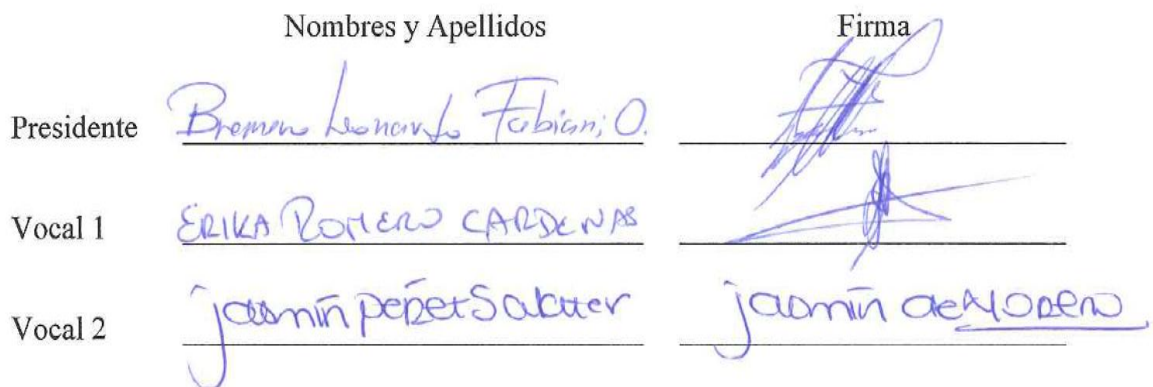 Nombres y Apellidos Firma
Presidente Leonardo Fabiani O.
Vocal 1 ERIKA ROMERO CARDENAS
Vocal 2 jasmín peret jasmín de MORERO